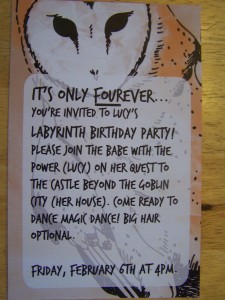 IT'S ONLY FOUREVER...
YOU'RE INVITED TO LUCY'S
LABYRINTH BIRTHDAY PARTY!
PLEASE JOIN THE BABE WITH THE
POWER (LUCY) ON HER QUEST TO
THE CASTLE BEYOND THE GOBLIN
CITY (HER HOUSE). COME READY TO
DANCE MAGIC DANCE! BIG HAIR
OPTIONAL.
FRIDAY, FEBRUARY 6TH AT 4PM.